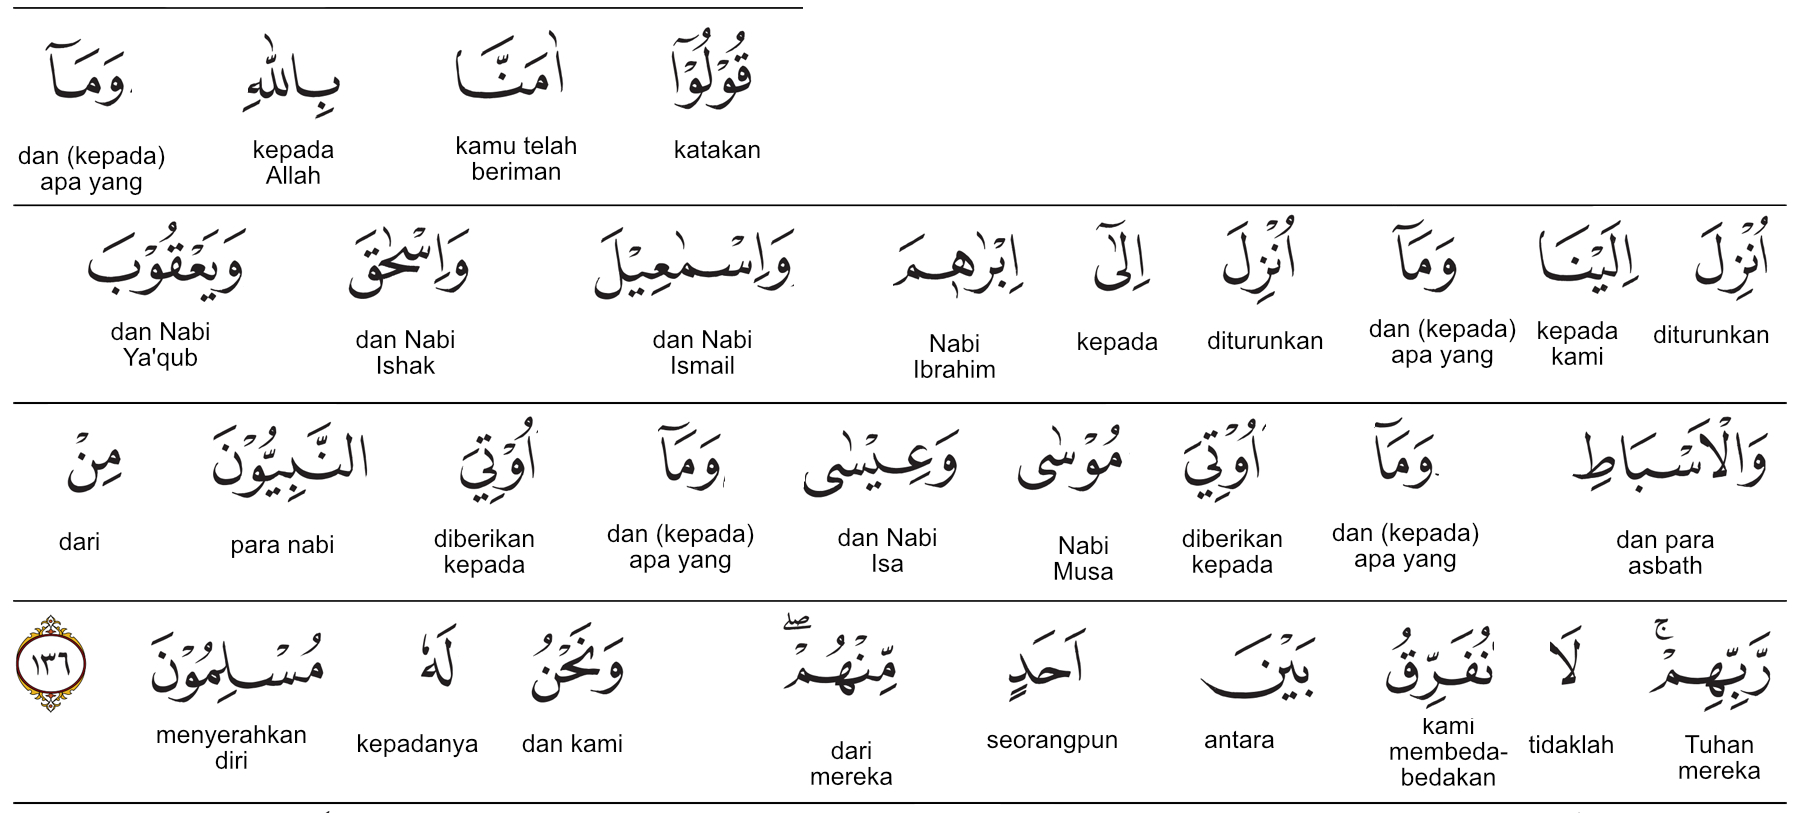 قُوْلُوْٓا اٰمَنَّا بِاللّٰهِ وَمَآ
katakan kamu telah beriman kepada Allah dan (kepada) apa yang
اُنْزِلَ اِلَيْنَا وَمَآ اُنْزِلَ اِلٰٓى اِبْرٰهٖمَ وَاِسْمٰعِيْلَ وَاِسْحٰقَ وَيَعْقُوْبَ
diturunkan kepada kami dan (kepada) apa yang diturunkan kepada Nabi Ibrahim dan Nabi Ismail dan Nabi Ishak dan Nabi Ya'qub
وَالْاَسْبَاطِ وَمَآ اُوْتِيَ مُوْسٰى وَعِيْسٰى وَمَآ اُوْتِيَ النَّبِيُّوْنَ مِنْ
dan para asbath dan (kepada) apa yang diberikan kepada Nabi Musa dan Nabi Isa dan (kepada) apa yang diberikan kepada para nabi dari
رَّبِّهِمْۚ لَا نُفَرِّقُ بَيْنَ اَحَدٍ مِّنْهُمْۖ وَنَحْنُ لَهٗ مُسْلِمُوْنَ ١٣٦
Tuhan mereka tidaklah kami membeda-bedakan antara seorangpun dari mereka dan kami kepadanya menyerahkan diri